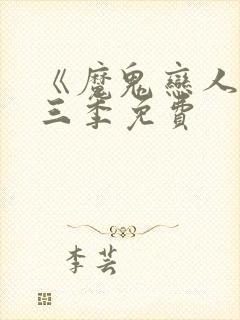 《魔鬼戀人
三季免費
李芸